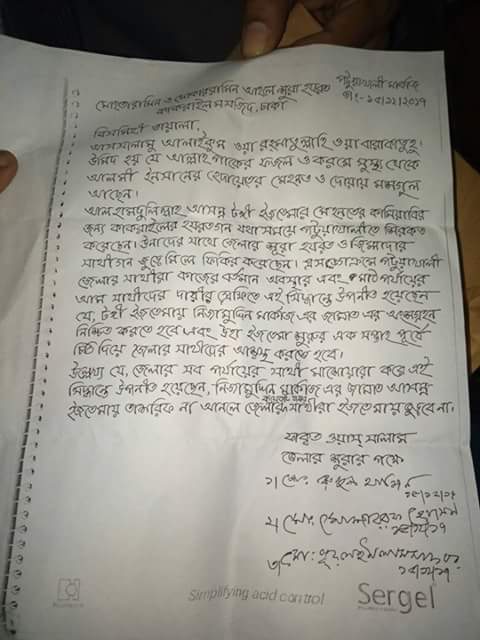 পটুয়াখালী মার্কাজ
তাং- ১৫/১২/২০১৭
মোহতারামিন ও মোকাররামিন আহলে শুরা হযরত
কাকরাইল মসজিদ, ঢাকা
বিসমিহী তায়ালা,
আসসালামু আলাইকুম ওয়া রহমাতুল্লাহি ওয়া বারাকাতুহু।
উমিদ হয় যে আল্লাহ পাকের ফজল ও করমে সুস্থ থেকে
আলমী ইনসানের হেদায়েতের মেহনত ও দোয়ায় মশগুল
আছেন।
আলহামদুলিল্লাহ আসন্ন টঙ্গী ইজতেমার মেহনতের কামিয়াবির
জন্য কাকরাইলের হযরতগন যথাসময়ে পটুয়াখালীতে শিরকত
করেছেন। উনাদের সাথে জেলার শুরা হযরত ও জিম্মাদার
সাথীগন জুড়ে মিলে ফিকির করেছেন। এমতাবস্থায় পটুয়াখালী
জেলার সাথীরা কাজের বর্তমান অবস্থার এবং মাঠ পর্যায়ের
আম সাথীদের দাবীর প্রেক্ষিতে এই সিদ্ধান্তে উপনীত হয়েছেন
যে, টঙ্গী ইজতেমায় নিজামুদ্দিন মার্কাজ এর জামাত এর অংশগ্রহন
নিশ্চিত করতে হবে এবং উহা ইজতেমা শুরুর এক সপ্তাহ পূর্বে
চিঠি দিয়ে জেলার সাথীদের আশ্বস্ত করতে হবে।
উল্লেখ্য যে, জেলার সব পর্যায়ের সাথী মাশোয়ারা করে এই
সিদ্ধান্তে উপনীত হয়েছেন, নিজামুদ্দিন মার্কাজ এর জামাত আসন্ন
ইজতেমায় তাশরিফ না আনলে জেলার সাথীরা ইজতেমায় জুড়বে না।
ওয়াস্ সালাম
জেলার শুরার পক্ষে
১। মোঃ রুহুল আমিন
১৫/১২/১৭
২। মোঃ
১৫/১২/১৭
৩। মোঃ
১৫/১২/১৭
Simplifying acid control
Sergel